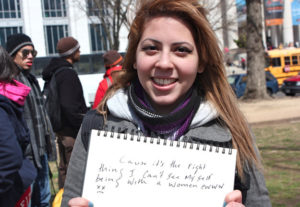 Cause it's the right
thing I can't see myself
being with a women ewww
xx